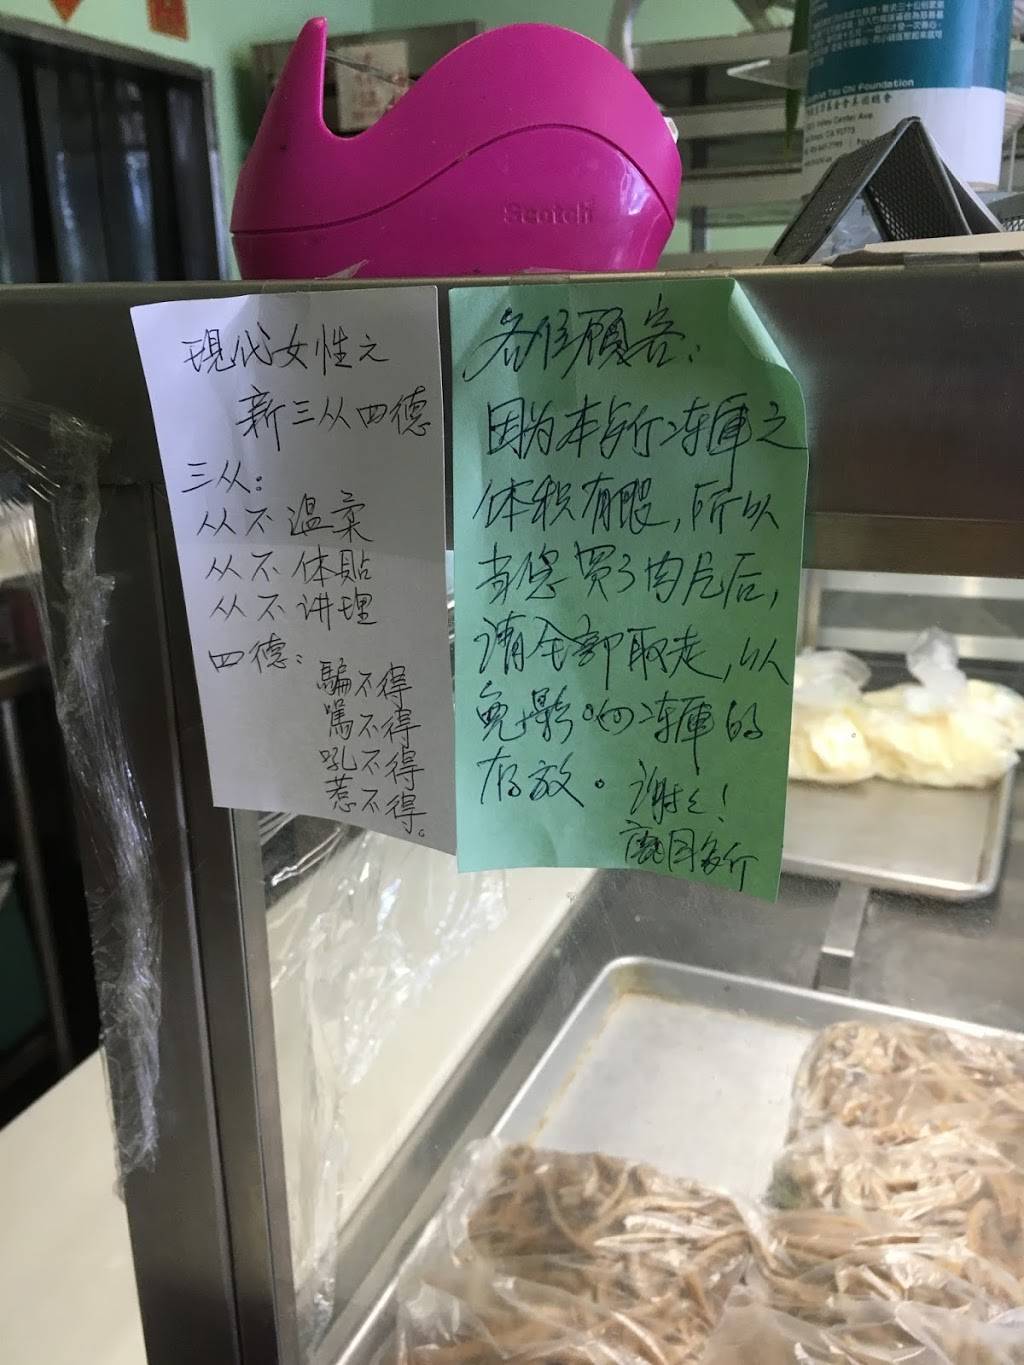 Scotch
Tzu Chi Foundation
Valley Center Ave.
CA 91773
現代女性之
新三从四德
三从:
从不温柔
从不体貼
从不讲理
四德:
騙不得
罵不得
吼不得
惹不得。
各位顾客:
因为本号冻庫之
体积有限,所以
当您買了肉片后,
请全部取走,以
免影响冻庫的
存放。
谢谢!